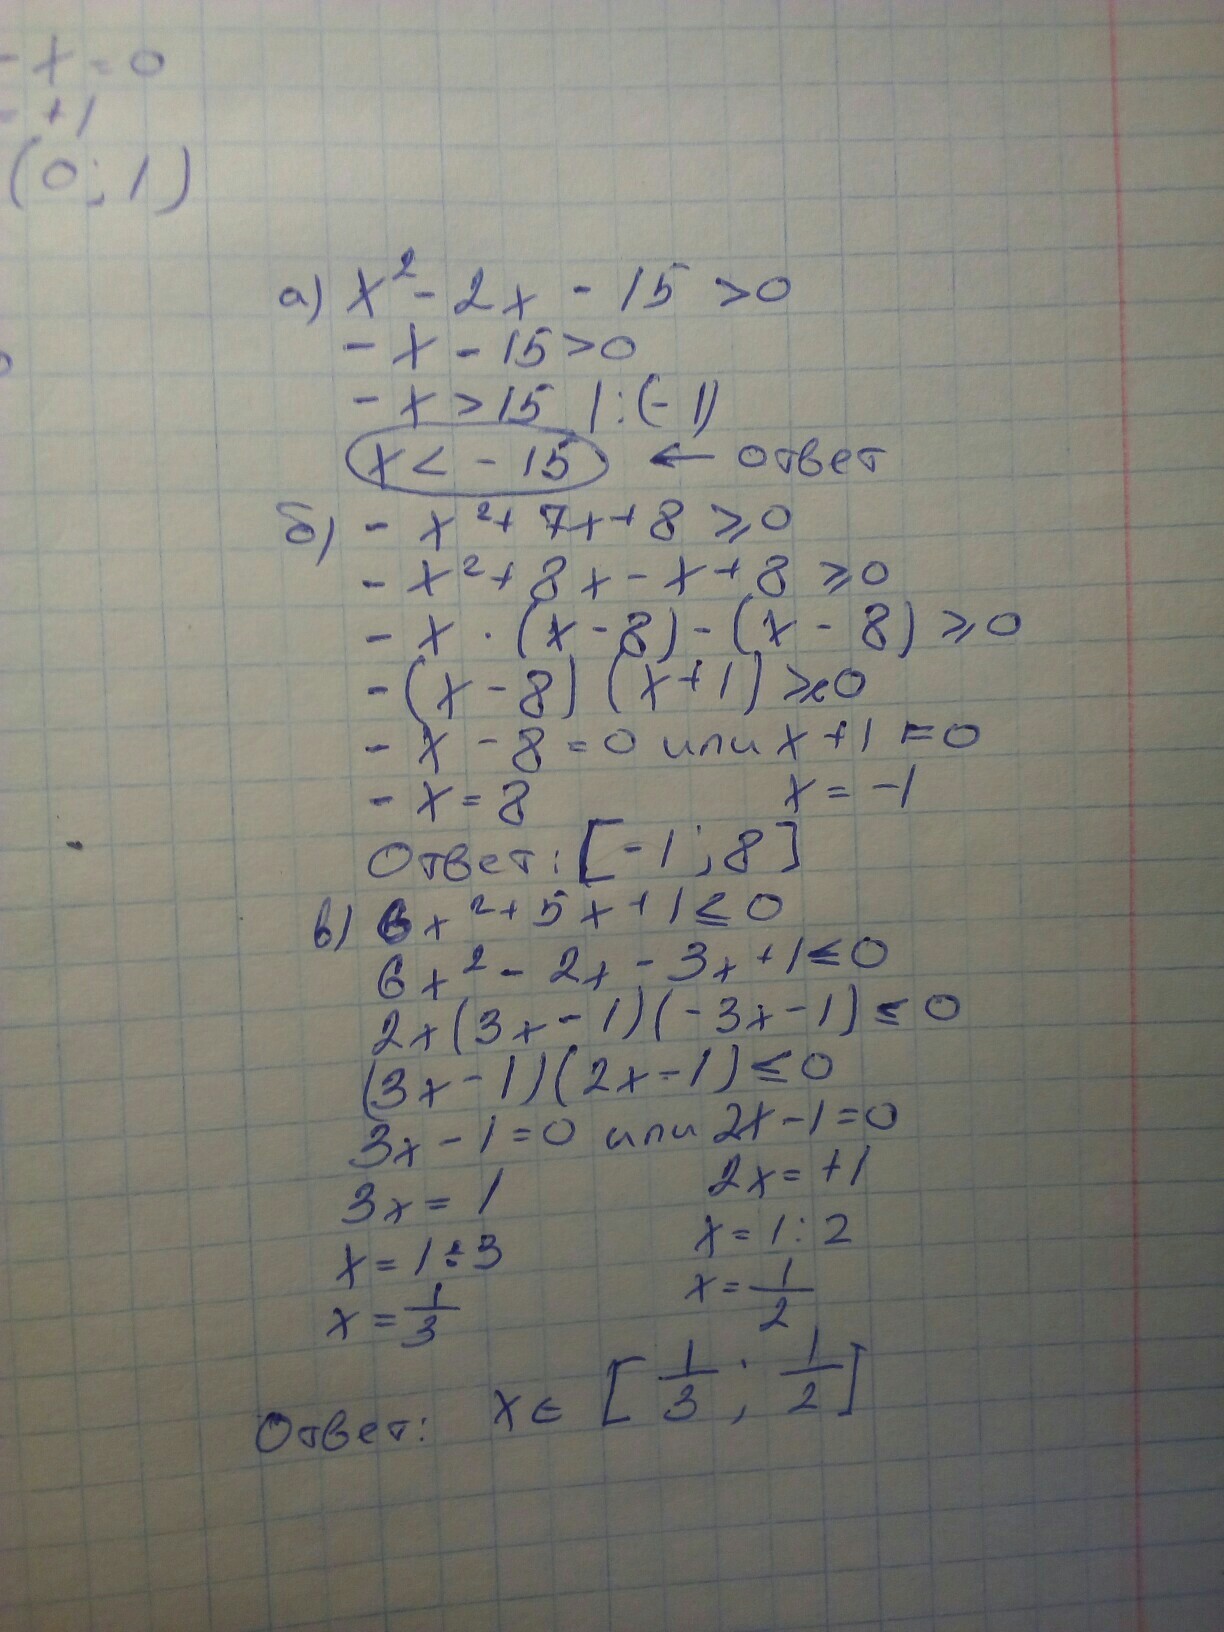 - x = 0
- +1
(0; 1)
а) x² - 2x - 15 > 0
- x - 15 > 0
- x > 15 | : (-1)
x < - 15 ← ответ
б) - x² + 7x + 8 ⩾ 0
- x² + 8x - x + 8 ⩾ 0
- x · (x - 8) - (x - 8) ⩾ 0
- (x - 8) (x + 1) ⩾ 0
- x - 8 = 0 или x + 1 = 0
- x = 8 x = -1
Ответ: [-1; 8]
в) 6x² + 5x + 1 ≤ 0
6x² - 2x - 3x + 1 ≤ 0
2x (3x - 1) (-3x - 1) ≤ 0
(3x - 1) (2x - 1) ≤ 0
3x - 1 = 0 или 2x - 1 = 0
3x = 1 2x = +1
x = 1 : 3 x = 1 : 2
x = 1/3 x = 1/2
Ответ: x ∈ [1/3; 1/2]